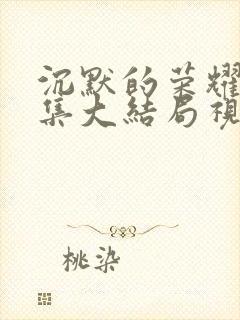 沉默的荣耀
集大结局视
桃染